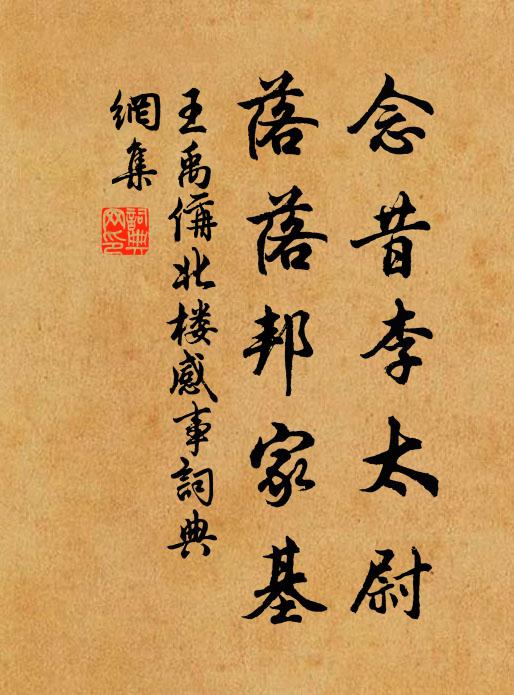 念昔李太尉
落落邦家基
王禹偁北楼感事詞典
網集
詞典网印